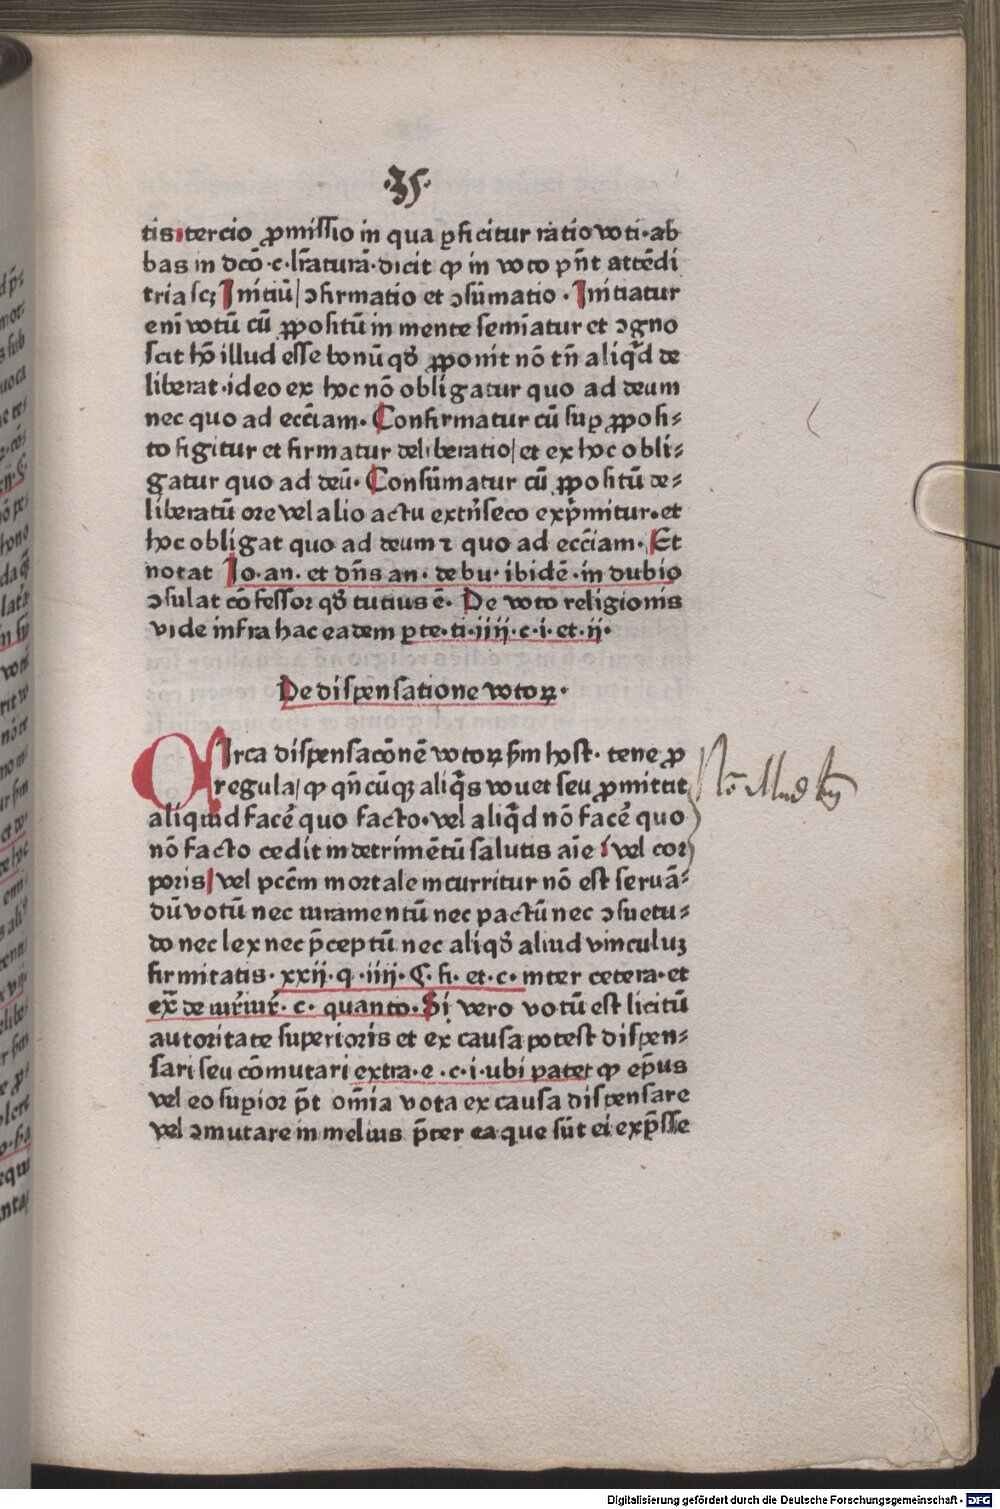 ·35·
tis tercio ꝓmissio in qua ꝑficitur ratio voti·ab
bas in dcō·c·lr̄aturā·dicit ꝙ in voto pn̄t attēdi
tria scꝫ Initiū/ ↄfirmatio et ↄsūmatio·Initiatur
eni votū cū ꝓpositū in mente seminatur et ↄgno
scit hō illud esse bonū qd̄ ꝓponit nō tn̄ aliqd̄ de
liberat·ideo ex hoc nō obligatur quo ad deum
nec quo ad ecc̄iam·Confirmatur cū suꝑ ꝓposi⸗
to figitur et firmatur deliberatio/ et ex hoc obli⸗
gatur quo ad deū·Consūmatur cū ꝓpositū de⸗
liberatū ore vel alio actu extn̄seco exp̄mitur·et
hoc obligat quo ad deum ⁊ quo ad ecc̄iam·Et
notat Io·an·et dn̄s an·de bu·ibidē·in dubio
ↄsulat cōfessor qd̄ tutius ē·De voto religionis
vide infra hac eadem ꝑte·ti·iiij·c·i·et·ij·
De dispensatione votoꝝ·
CIrca dispensacōnē votoꝝ ẜm host·tene ꝓ
regula/ ꝙ qn̄cūqꝫ aliq̄s vouet seu ꝓmittit
aliquid facē quo facto·vel aliqd̄ nō facē quo
nō facto cedit in detrimētū salutis aīe vel cor
poris/ vel pccm̄ mortale incurritur nō est seruā⸗
dū votū nec iuramentū nec pactū nec ↄsuetu⸗
do nec lex nec p̄ceptū nec aliqd̄ aliud vinculuꝫ
firmitatis·xxij·q·iiij·§·si·et·c·inter cetera·et
ex̄ de iur̄iur̄·c·quanto·Si vero votū est licitū
autoritate superioris et ex causa potest dispen⸗
sari seu cōmutari extra·e·c·i·ubi patet ꝙ ep̄us
vel eo suꝑior pt̄ om̄ia vota ex causa dispensare
vel ↄmutare in melius p̄ter ea que sūt ei exp̄sse
Digitalisierung gefördert durch die Deutsche Forschungsgemeinschaft - DFG